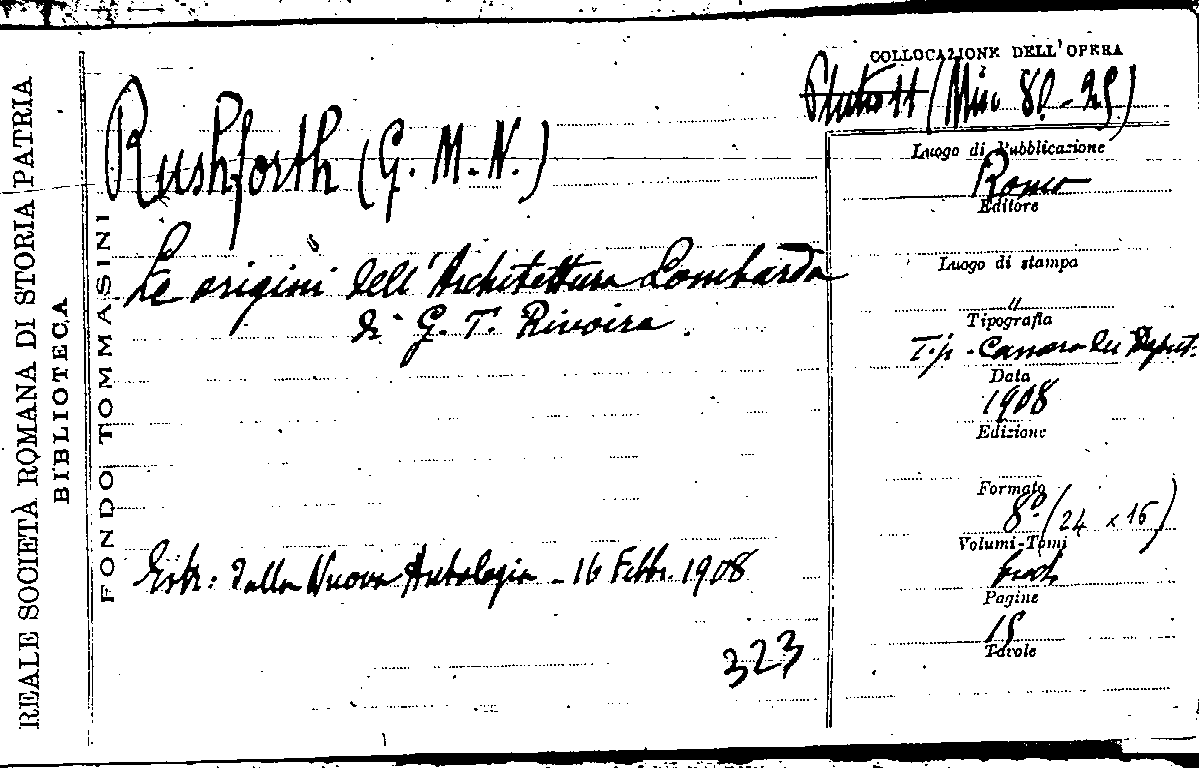 REALE SOCIETÀ ROMANA DI STORIA PATRIA
BIBLIOTECA
FONDO TOMMASINI
COLLOCAZIONE DELL'OPERA
(Misc 80-25)
Rushforth (G. M. N.)
Le origini dell'Architettura Lombarda
di G. T. Rivoira.
Estr: dalla Nuova Antologia - 16 Febbr. 1908
323
Luogo di Pubblicazione
Roma
Editore
Luogo di stampa
"
Tipografia
Tip. Camera dei Deput.
Data
1908
Edizione
Formato
8º (24 x 16)
Volumi-Tomi
Pagine
15
Tavole